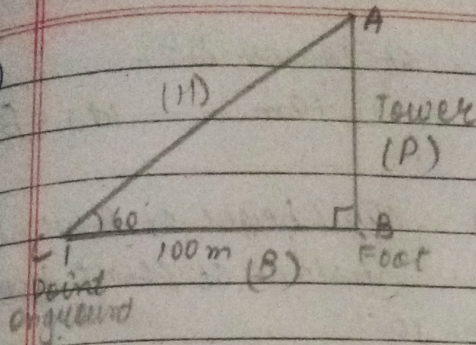 A
(H)
Tower
(P)
60°
B
100m
(B)
Foot
point
onground